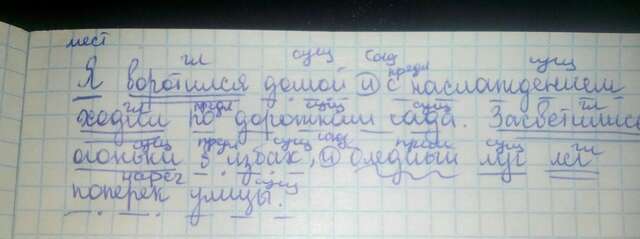 мест
гл сущ союз предл сущ
Я воротился домой и с наслаждением
гл предл сущ сущ гл
ходил по дорожкам сада. Засветились
сущ предл сущ союз прил сущ гл
огоньки в избах, и бледный луч лег
нареч сущ
поперек улицы.